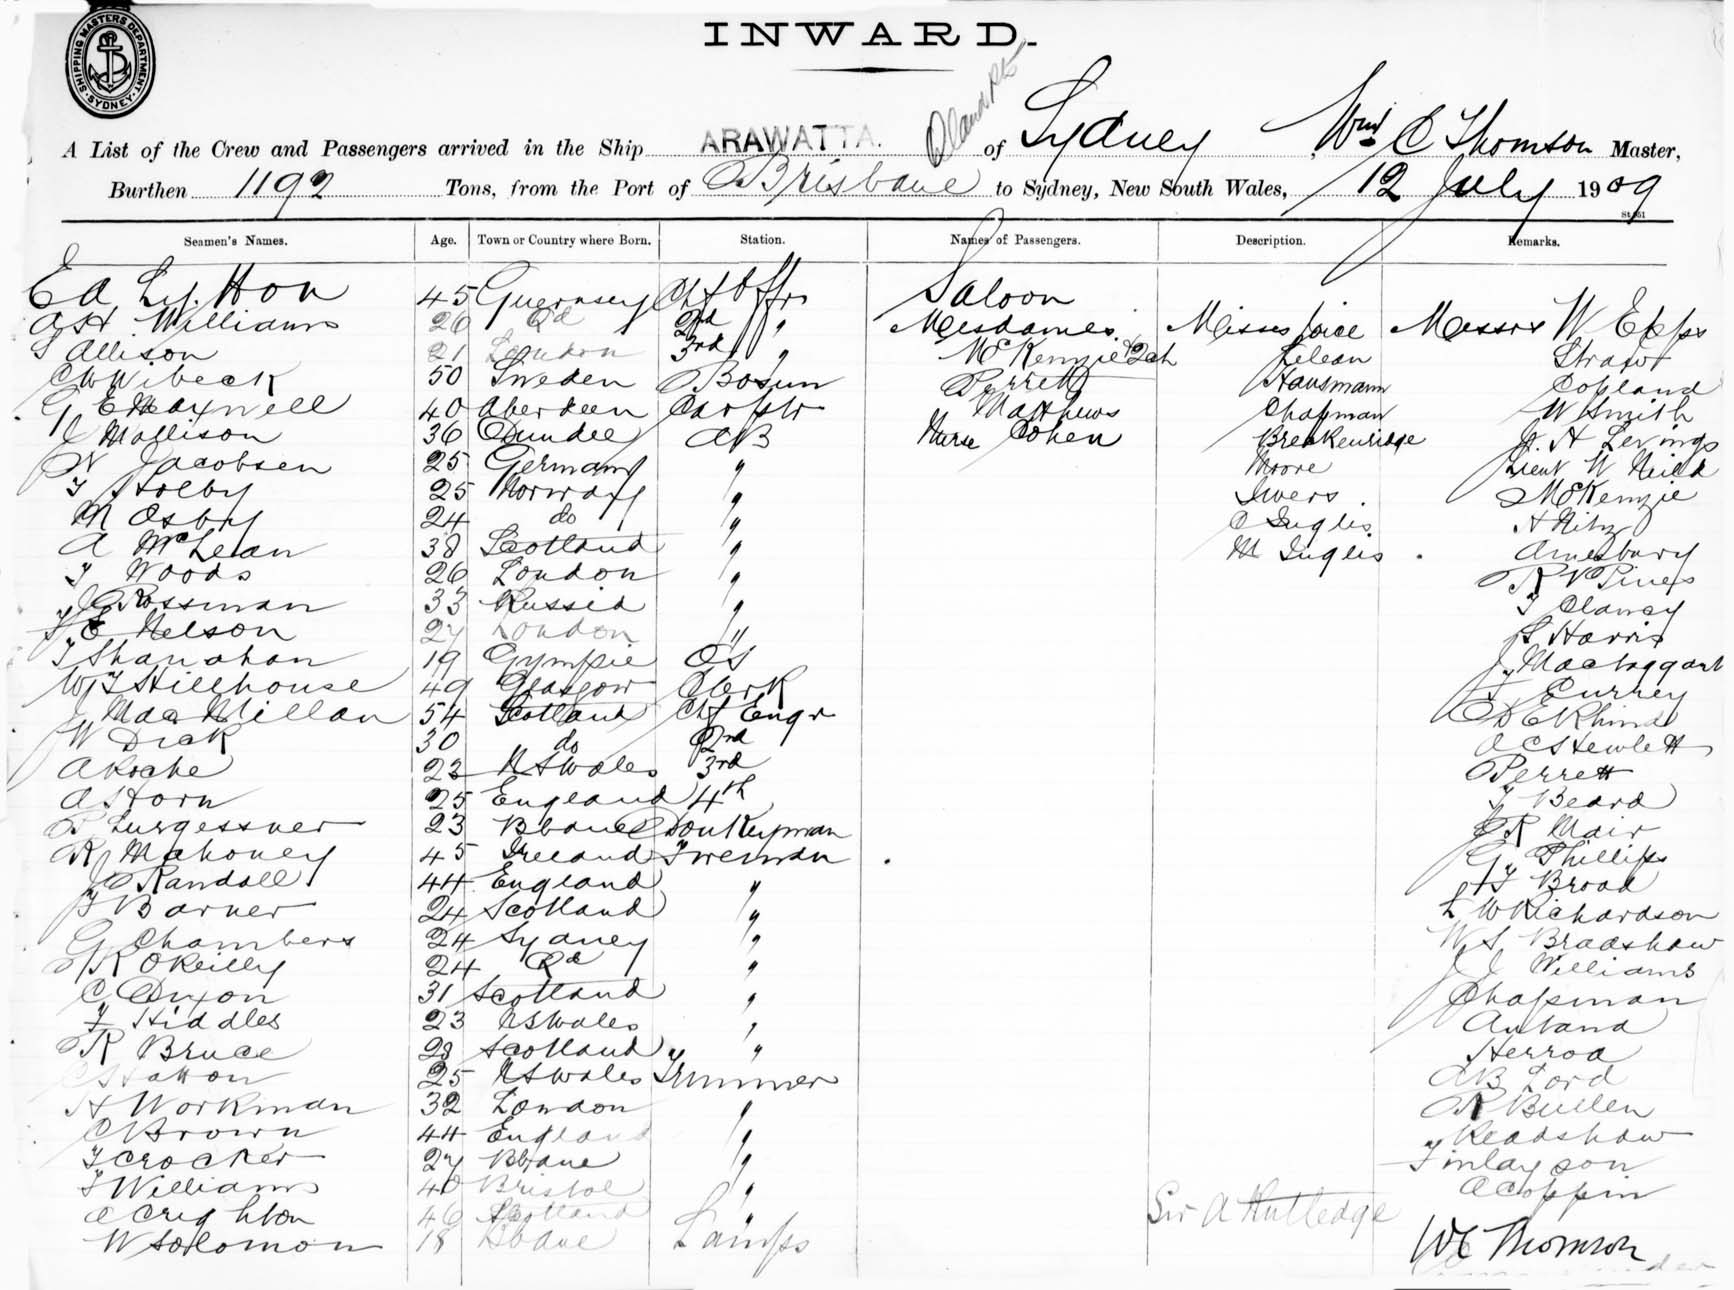 SHIPPING MASTERS DEPARTMENT SYDNEY
INWARD.
A List of the Crew and Passengers arrived in the Ship ARAWATTA. of Sydney, Wm C Thomson Master,
Burthen 1192 Tons, from the Port of Brisbane to Sydney, New South Wales, 12 July 1909
Seamen's Names. Age. Town or Country where Born. Station. Names of Passengers. Description. Remarks.
45 Guernsey Chf Offr Saloon
A H Williams 26 Qd 2nd " Mesdames Misses Messrs W Epps
Allison 21 London 3rd " McKenzie & 2ch Straw
C W Wibeck 50 Sweden Bosun Perrett Hausmann Copland
G E Maxwell 40 Aberdeen Carptr Matthews Chapman W Smith
J Mallison 36 Dundee AB Nurse Cohen Breakenridge J H Levings
N Jacobsen 25 Germany " Moore Lieut W Neild
T Holby 25 Norway " Ivers McKenzie
M Osby 24 do " C Inglis
A McLean 38 Scotland " M Inglis Amesbury
T Woods 26 London "
J Rossman 33 Russia " T Clancy
T E Nelson 27 London " S Harris
T Shanahan 19 Gympie OS J Mactaggart
W J Stillhouse 49 Glasgow Clerk T Currey
J MacMillan 54 Scotland Chf Engr
W Dick 30 do 2nd A C S Hewlett
A Roche 23 N S Wales 3rd Perrett
A Horn 25 England 4th T Beard
23 Bbane Donkeyman J R Mair
R Mahoney 45 Ireland Fireman G Phillips
J Randall 44 England " T Broad
T Barner 24 Scotland " L W Richardson
G Chambers 24 Sydney " W S Bradshaw
R O'Reilly 24 Qd " J J Williams
C Dixon 31 Scotland " Chapman
T Hiddles 23 N S Wales "
R Bruce 28 Scotland " Herrod
C Hatton 25 N S Wales Trimmer A B Lord
H Workman 32 London " R Bullen
C Brown 44 England " Readshaw
T Crocker 27 Bbane " Finlayson
T Williams 40 Bristol " A Coppin
A Crighton 46 Scotland " Sir A Rutledge
W Solomon 18 Bbane Lamps W C Thomson